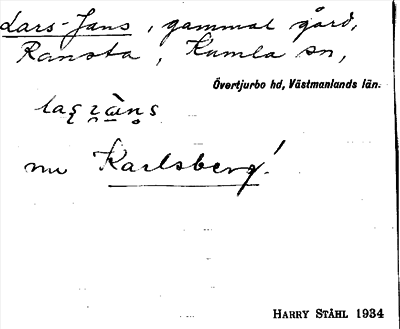 Lars-Jans, gammal gård,
Ransta, Kumla sn,
Övertjurbo hd, Västmanlands län.
nu Karlsberg!
HARRY STÅHL 1934